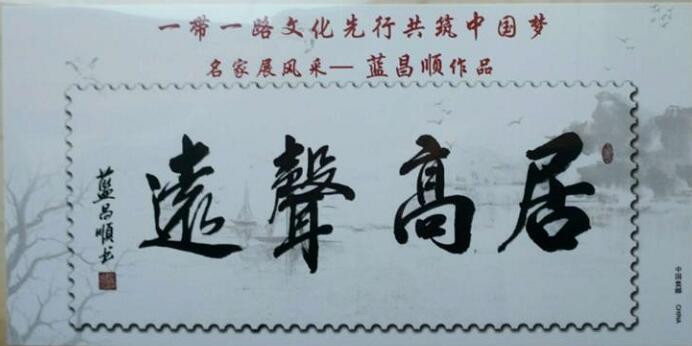 一带一路文化先行共筑中国梦
名家展风采—蓝昌顺作品
居高聲遠
藍昌順书
中国集邮 CHINA